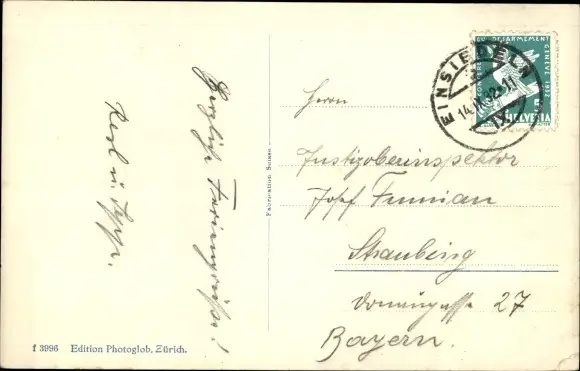 Herzliche Feriengrüße!
Karl u. Sepp.
Fabrication Suisse
CONFERENCE DU DESARMEMENT GENEVE 1932
5
HELVETIA
EINSIEDELN
14.IX.32-11
Herrn
Justizoberinspektor
Josef
Straubing
27
Bayern.
f 3996 Edition Photoglob, Zürich.